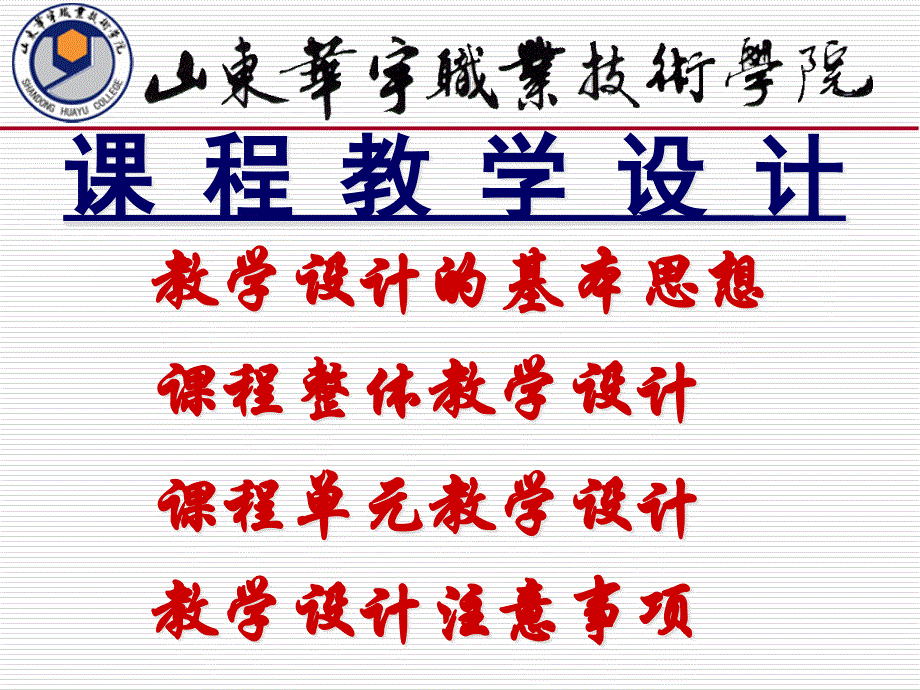 山東華宇職業技術學院
山東華宇職業技術學院
SHANDONG HUAYU COLLEGE
课程教学设计
教学设计的基本思想
课程整体教学设计
课程单元教学设计
教学设计注意事项